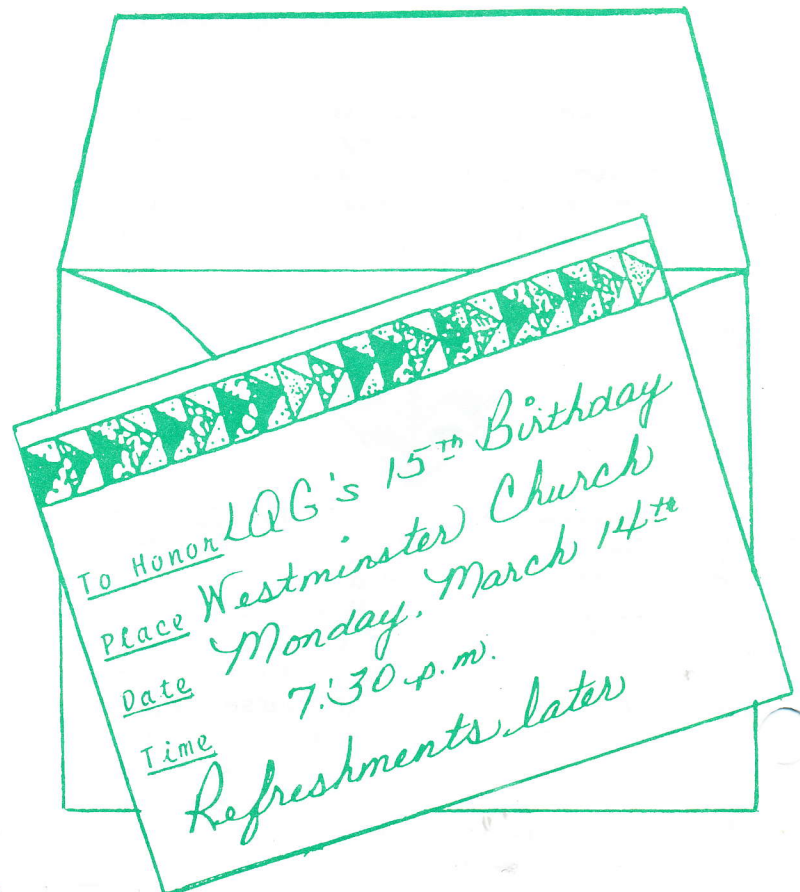 To Honor LQG's 15th Birthday
Place Westminster Church
Date Monday, March 14th
Time 7:30 p.m.
Refreshments later